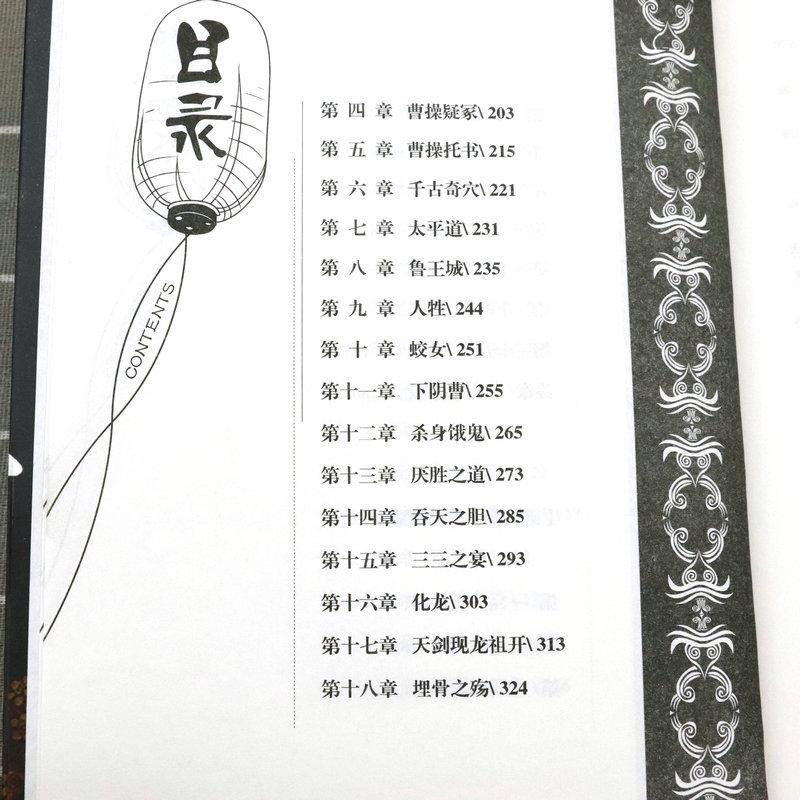 目录
CONTENTS
第四章 曹操疑冢\ 203
第五章 曹操托书\ 215
第六章 千古奇穴\ 221
第七章 太平道\ 231
第八章 鲁王城\ 235
第九章 人牲\ 244
第十章 蛟女\ 251
第十一章 下阴曹\ 255
第十二章 杀身饿鬼\ 265
第十三章 厌胜之道\ 273
第十四章 吞天之胆\ 285
第十五章 三三之宴\ 293
第十六章 化龙\ 303
第十七章 天剑现龙祖开\ 313
第十八章 埋骨之殇\ 324